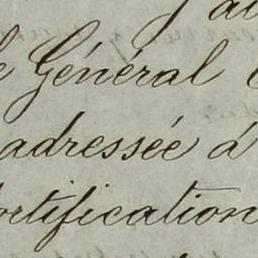 Général
adressée à
fortification